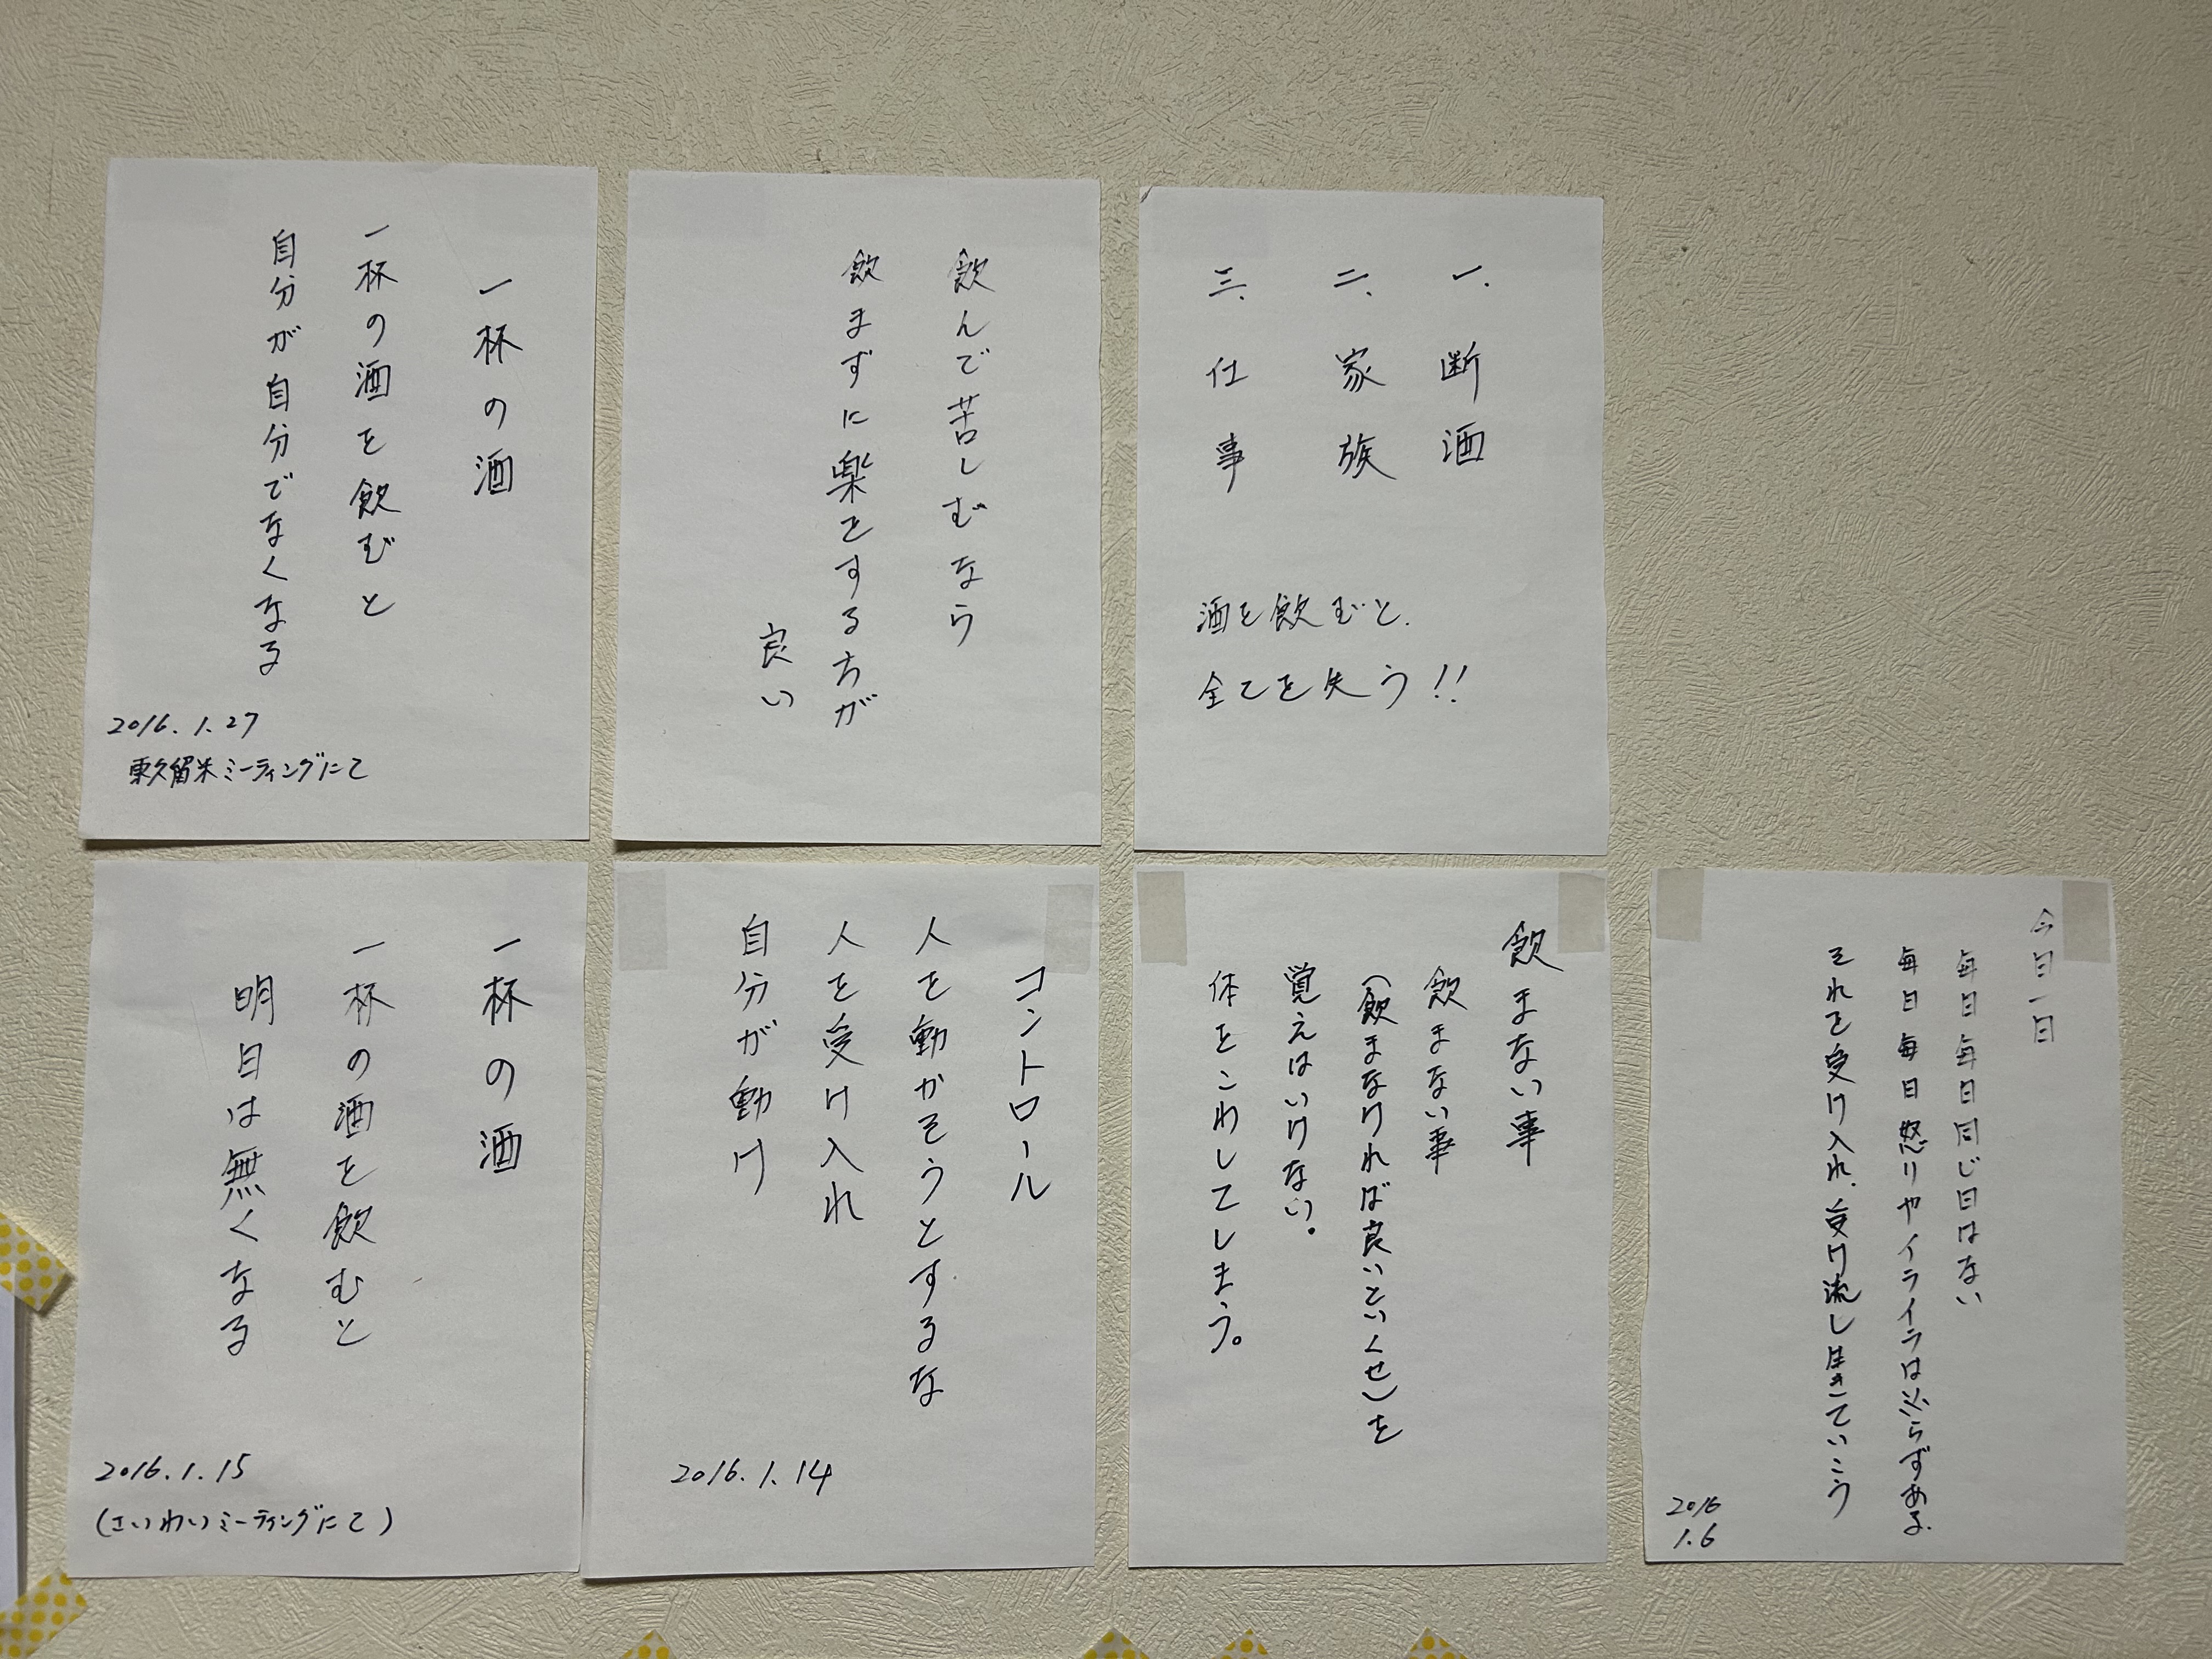 一、断酒
二、家族
三、仕事
酒を飲むと、
全てを失う!!
飲んで苦しむなら
飲まずに楽をする方が
良い
一杯の酒
一杯の酒を飲むと
自分が自分でなくなる
2016.1.27
東久留米ミーティングにて
今日一日
毎日毎日同じ日はない
毎日毎日怒りやイライラは必らずある。
それを受け入れ、受け流し生きていこう
2016
1.6
飲まない事
飲まない事
(飲まなければ良いというくせ)を
覚えはいけない。
体をこわしてしまう。
コントロール
人を動かそうとするな
人を受け入れ
自分が動け
2016.1.14
一杯の酒
一杯の酒を飲むと
明日は無くなる
2016.1.15
(さいわいミーティングにて)